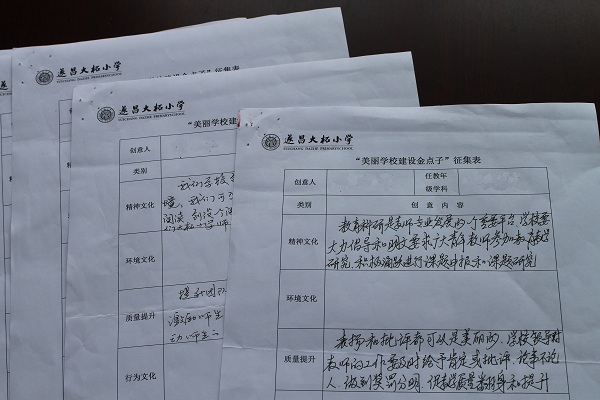 遂昌大柘小学
SUICHANG DAZHE PRIMARYSCHOOL
设金点子”征集表
遂昌大柘小学
SUICHANG DAZHE PRIMARYSCHOOL
“美丽学校建
创意人
类别
精神文化
我们学校
境，我们可
阅读
环境文化
质量提升
提升团队
激励师生
动师生
行为文化
遂昌大柘小学
SUICHANG DAZHE PRIMARYSCHOOL
“美丽学校建设金点子”征集表
创意人
任教年
级学科
类别
创意内容
精神文化
教育科研是教师专业发展的一个重要平台，学校要
大力倡导和明文要求广大青年教师参加教育教学
研究，积极踊跃进行课题申报和课题研究
环境文化
质量提升
表扬和批评都可以是美丽的，学校领导对
教师的工作要及时给予肯定或批评，论事不论
人，做到奖罚分明，促教学质量和提升